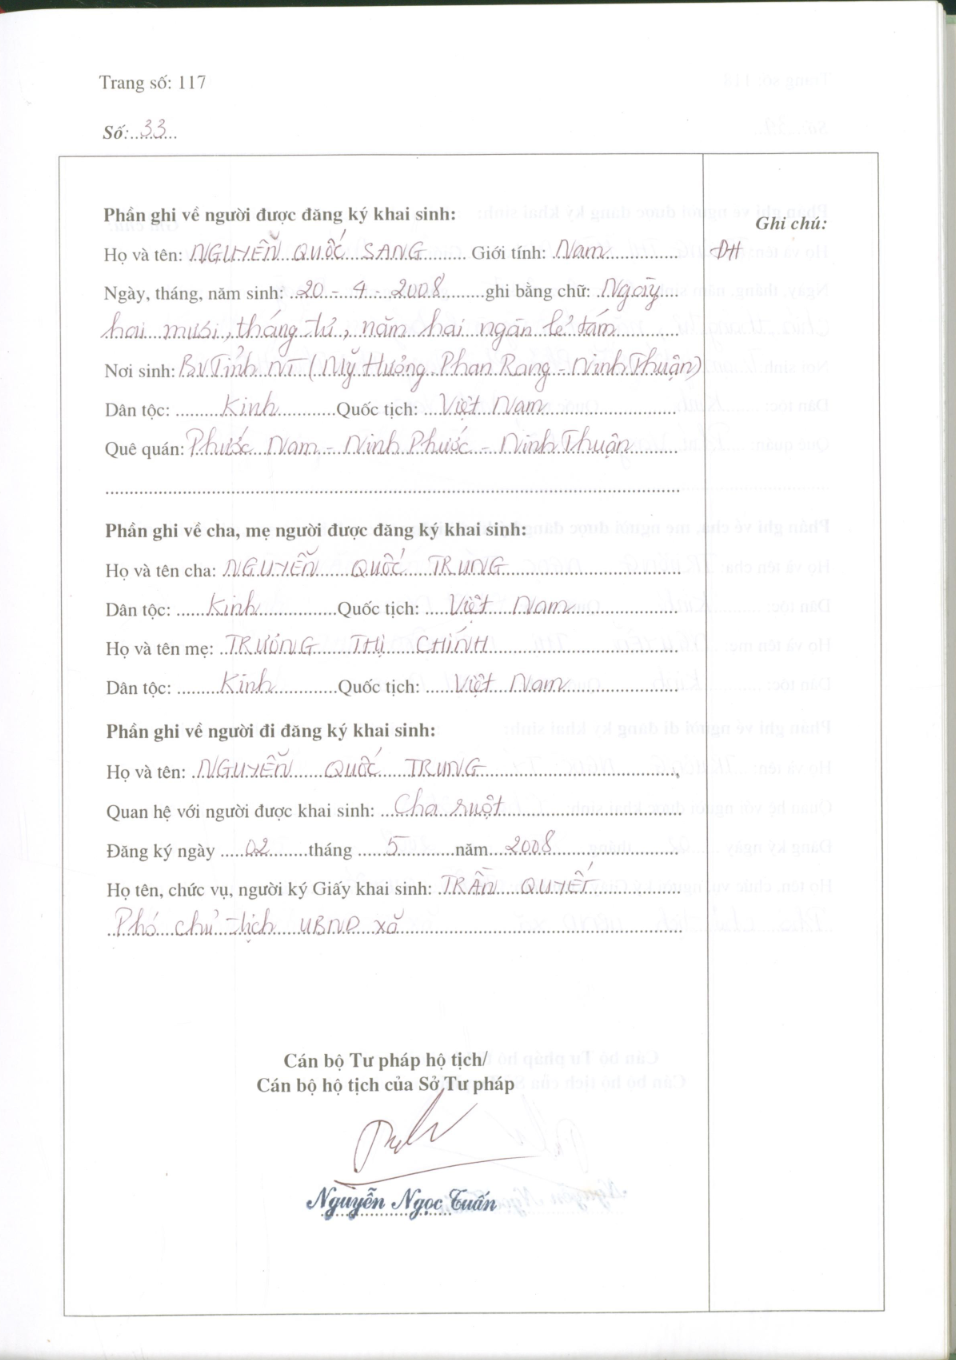 Trang số: 117
Số: 33
Phần ghi về người được đăng ký khai sinh:
Ghi chú:
Họ và tên: NGUYỄN QUỐC SANG Giới tính: Nam
ĐH
Ngày, tháng, năm sinh: 20 - 4 - 2008 ghi bằng chữ: Ngày
hai mươi, tháng tư, năm hai ngàn lẻ tám
Nơi sinh: BV Tỉnh NT (Mỹ Hương Phan Rang - Ninh Thuận)
Dân tộc: Kinh Quốc tịch: Việt Nam
Quê quán: Phước Nam - Ninh Phước - Ninh Thuận
Phần ghi về cha, mẹ người được đăng ký khai sinh:
Họ và tên cha: NGUYỄN QUỐC TRUNG
Dân tộc: Kinh Quốc tịch: Việt Nam
Họ và tên mẹ: TRƯƠNG THỊ CHÍNH
Dân tộc: Kinh Quốc tịch: Việt Nam
Phần ghi về người đi đăng ký khai sinh:
Họ và tên: NGUYỄN QUỐC TRUNG
Quan hệ với người được khai sinh: Cha ruột
Đăng ký ngày 02 tháng 5 năm 2008
Họ tên, chức vụ, người ký Giấy khai sinh: TRẦN QUYẾT
Phó chủ tịch UBND xã
Cán bộ Tư pháp hộ tịch/
Cán bộ hộ tịch của Sở Tư pháp
Nguyễn Ngọc Tuấn